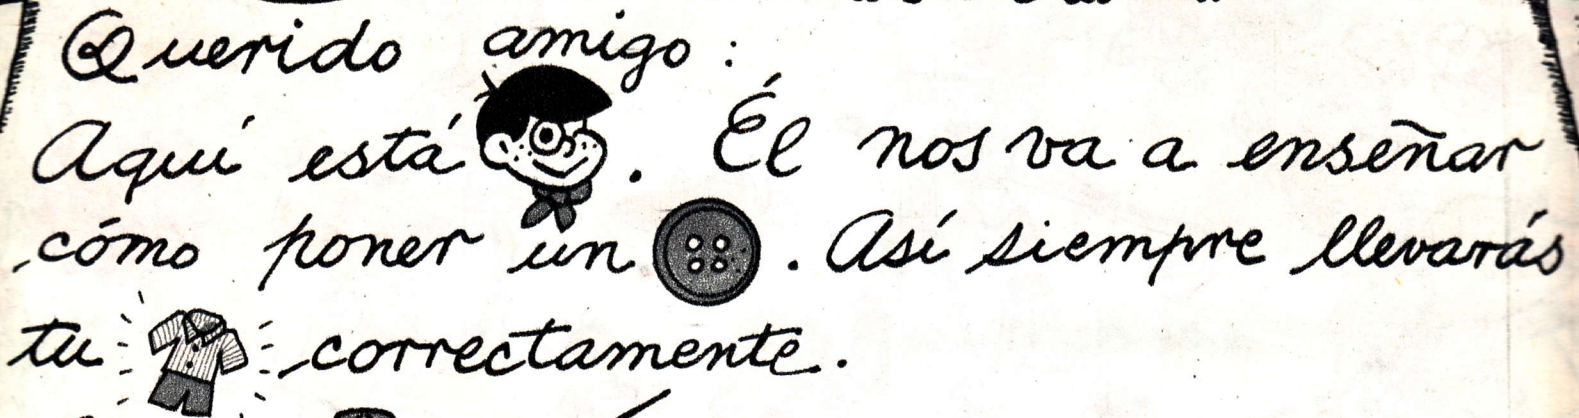 Querido amigo:
Aquí está . Él nos va a enseñar
cómo poner un . Así siempre llevarás
tu correctamente.